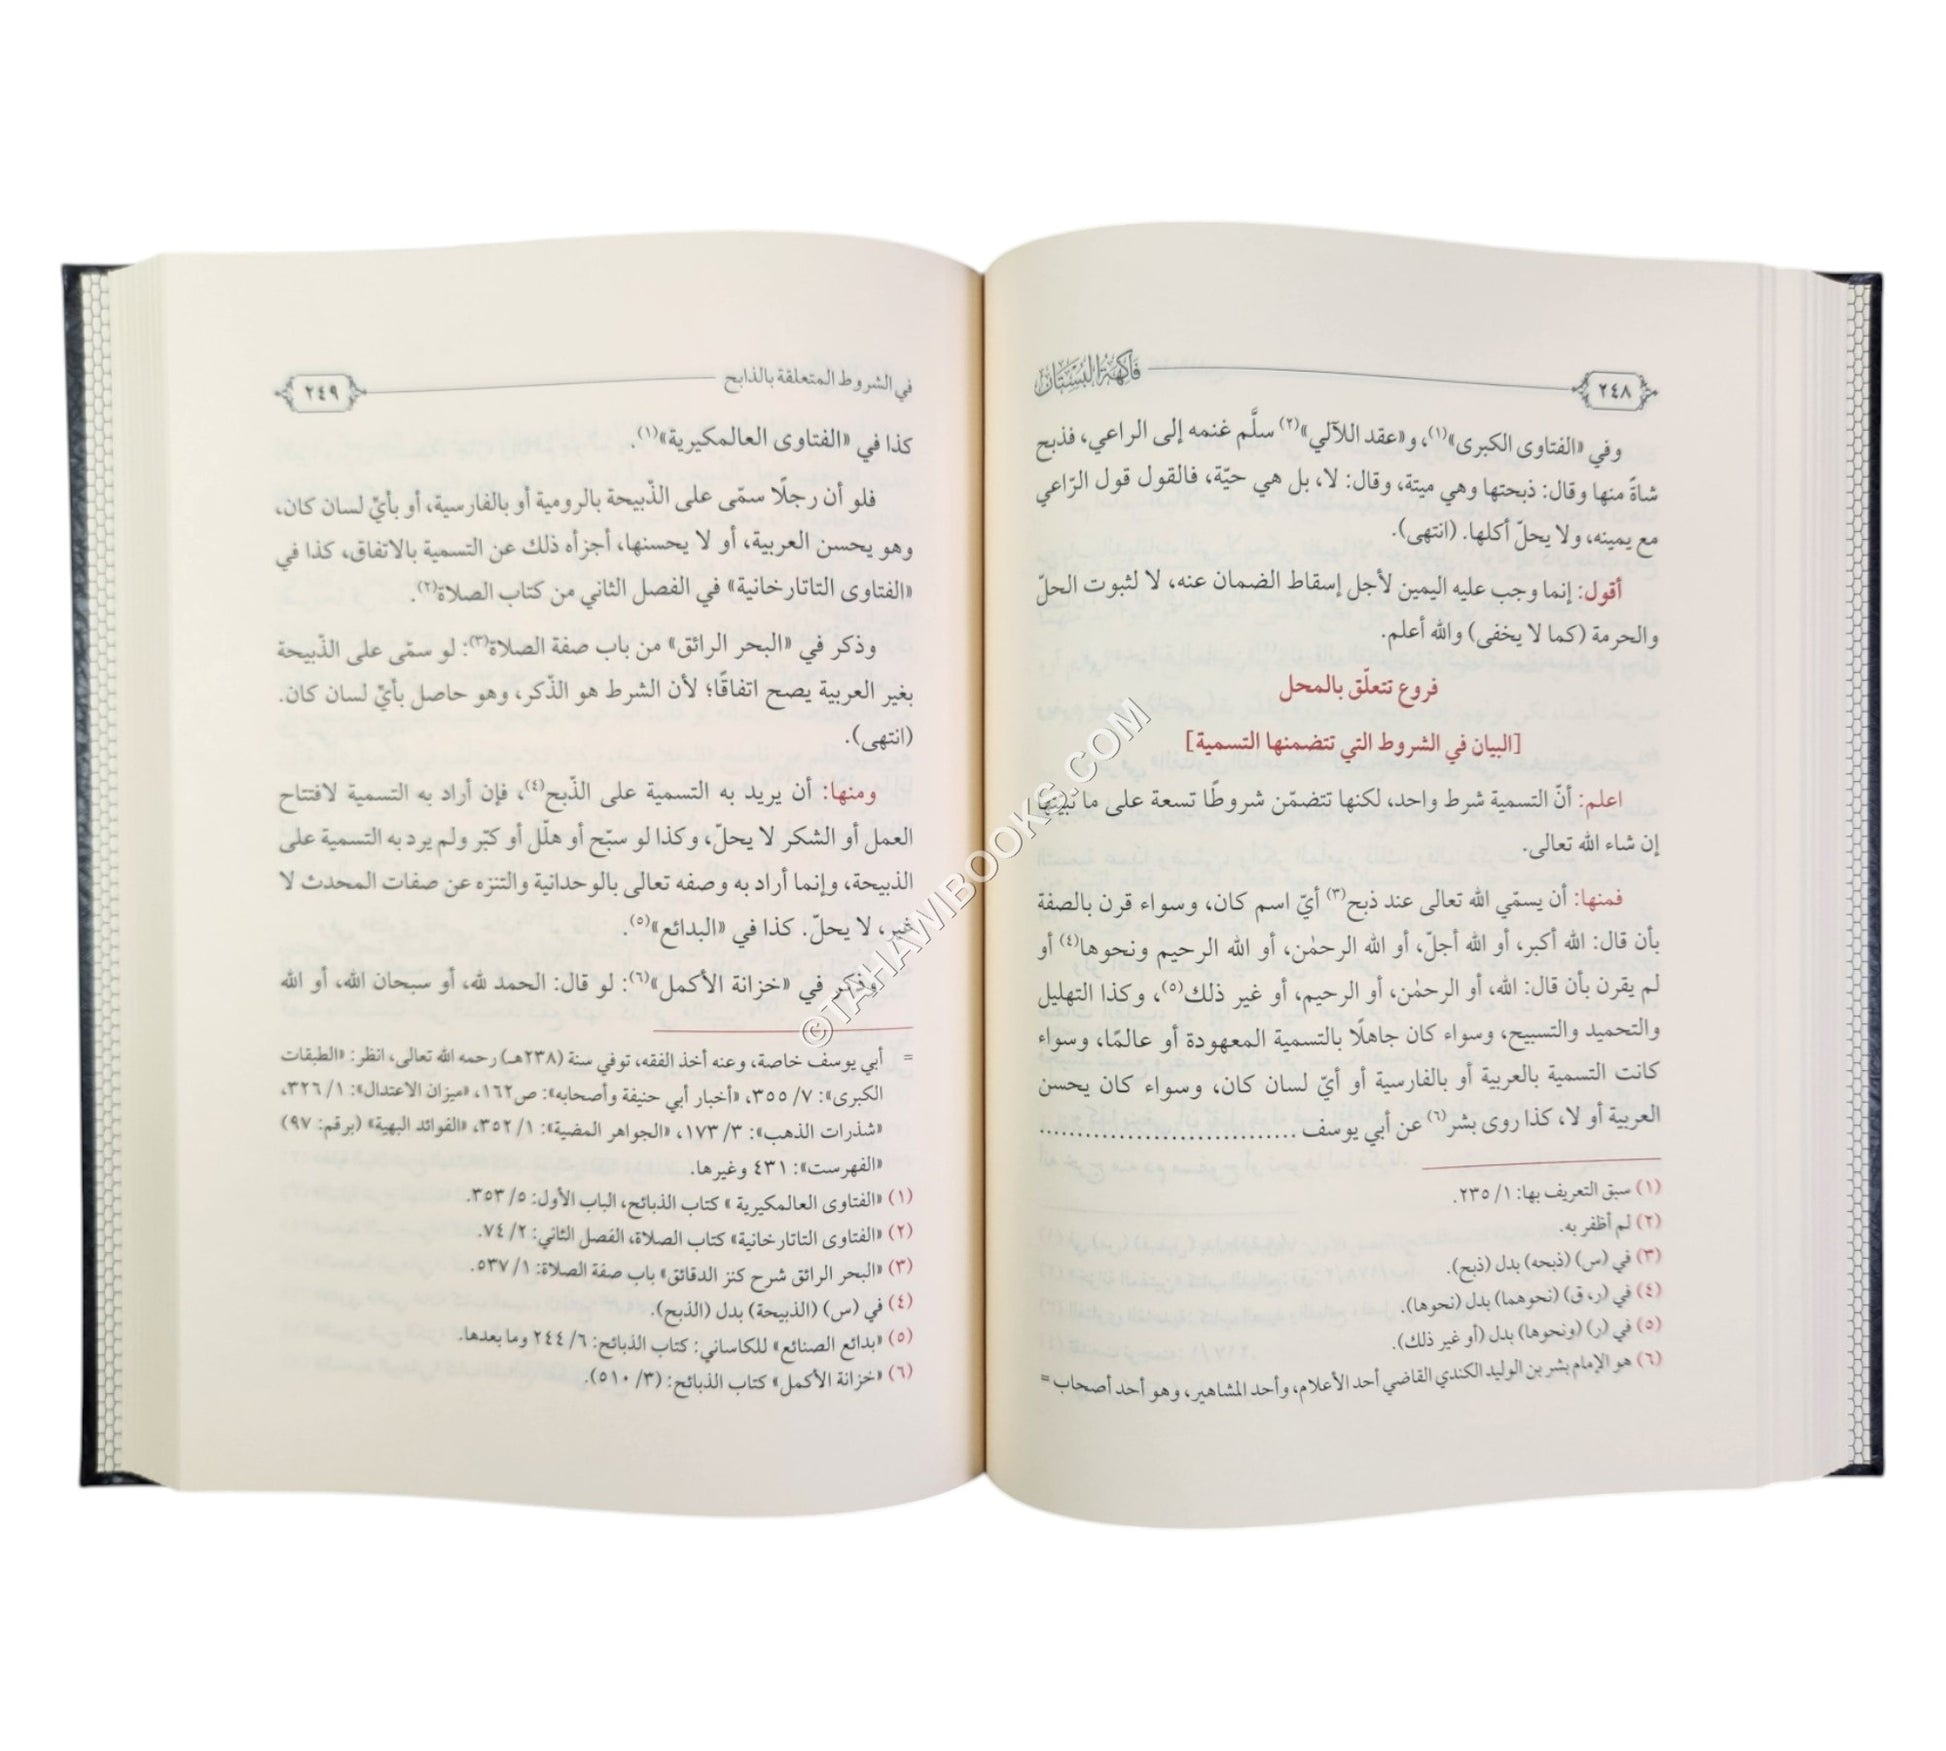 ٢٤٨
فَاكِهَةُ البُسْتَان
وفي «الفتاوى الكبرى»(١)، و«عقد اللآلي»(٢) سلَّم غنمه إلى الراعي، فذبح
شاةً منها وقال: ذبحتها وهي ميتة، وقال: لا، بل هي حيّة، فالقول قول الرّاعي
مع يمينه، ولا يحلّ أكلها. (انتهى).
أقول: إنما وجب عليه اليمين لأجل إسقاط الضمان عنه، لا لثبوت الحلّ
والحرمة (كما لا يخفى) والله أعلم.
فروع تتعلّق بالمحل
[البيان في الشروط التي تتضمنها التسمية]
اعلم: أنّ التسمية شرط واحد، لكنها تتضمّن شروطًا تسعة على ما نبيّنها
إن شاء الله تعالى.
فمنها: أن يسمّي الله تعالى عند ذبح(٣) أيّ اسم كان، وسواء قرن بالصفة
بأن قال: الله أكبر، أو الله أجلّ، أو الله الرحمٰن، أو الله الرحيم ونحوها(٤) أو
لم يقرن بأن قال: الله، أو الرحمٰن، أو الرحيم، أو غير ذلك(٥)، وكذا التهليل
والتحميد والتسبيح، وسواء كان جاهلًا بالتسمية المعهودة أو عالمًا، وسواء
كانت التسمية بالعربية أو بالفارسية أو أيّ لسان كان، وسواء كان يحسن
العربية أو لا، كذا روى بشر(٦) عن أبي يوسف ..............................
(١) سبق التعريف بها: ١/ ٢٣٥.
(٢) لم أظفر به.
(٣) في (س) (ذبحه) بدل (ذبح).
(٤) في (ر، ق) (نحوهما) بدل (نحوها).
(٥) في (ر) (ونحوها) بدل (أو غير ذلك).
(٦) هو الإمام بشر بن الوليد الكندي القاضي أحد الأعلام، وأحد المشاهير، وهو أحد أصحاب =
في الشروط المتعلقة بالذابح
٢٤٩
كذا في «الفتاوى العالمكيرية»(١).
فلو أن رجلًا سمّى على الذّبيحة بالرومية أو بالفارسية، أو بأيّ لسان كان،
وهو يحسن العربية، أو لا يحسنها، أجزأه ذلك عن التسمية بالاتفاق، كذا في
«الفتاوى التاتارخانية» في الفصل الثاني من كتاب الصلاة(٢).
وذكر في «البحر الرائق» من باب صفة الصلاة(٣): لو سمّى على الذّبيحة
بغير العربية يصح اتفاقًا؛ لأن الشرط هو الذّكر، وهو حاصل بأيّ لسان كان.
(انتهى).
ومنها: أن يريد به التسمية على الذّبح(٤)، فإن أراد به التسمية لافتتاح
العمل أو الشكر لا يحلّ، وكذا لو سبّح أو هلّل أو كبّر ولم يرد به التسمية على
الذبيحة، وإنما أراد به وصفه تعالى بالوحدانية والتنزه عن صفات المحدث لا
غير، لا يحلّ. كذا في «البدائع»(٥).
وذكر في «خزانة الأكمل»(٦): لو قال: الحمد لله، أو سبحان الله، أو الله
= أبي يوسف خاصة، وعنه أخذ الفقه، توفي سنة (٢٣٨هـ) رحمه الله تعالى، انظر: «الطبقات
الكبرى»: ٧/ ٣٥٥، «أخبار أبي حنيفة وأصحابه»: ص١٦٢، «ميزان الاعتدال»: ١/ ٣٢٦،
«شذرات الذهب»: ٣/ ١٧٣، «الجواهر المضية»: ١/ ٣٥٢، «الفوائد البهية» (برقم: ٩٧)
«الفهرست»: ٤٣١ وغيرها.
(١) «الفتاوى العالمكيرية » كتاب الذبائح، الباب الأول: ٥/ ٣٥٣.
(٢) «الفتاوى التاتارخانية» كتاب الصلاة، الفصل الثاني: ٢/ ٧٤.
(٣) «البحر الرائق شرح كنز الدقائق» باب صفة الصلاة: ١/ ٥٣٧.
(٤) في (س) (الذبيحة) بدل (الذبح).
(٥) «بدائع الصنائع» للكاساني: كتاب الذبائح: ٦/ ٢٤٤ وما بعدها.
(٦) «خزانة الأكمل» كتاب الذبائح: (٣/ ٥١٠).
©TAHAWIBOOKS.COM